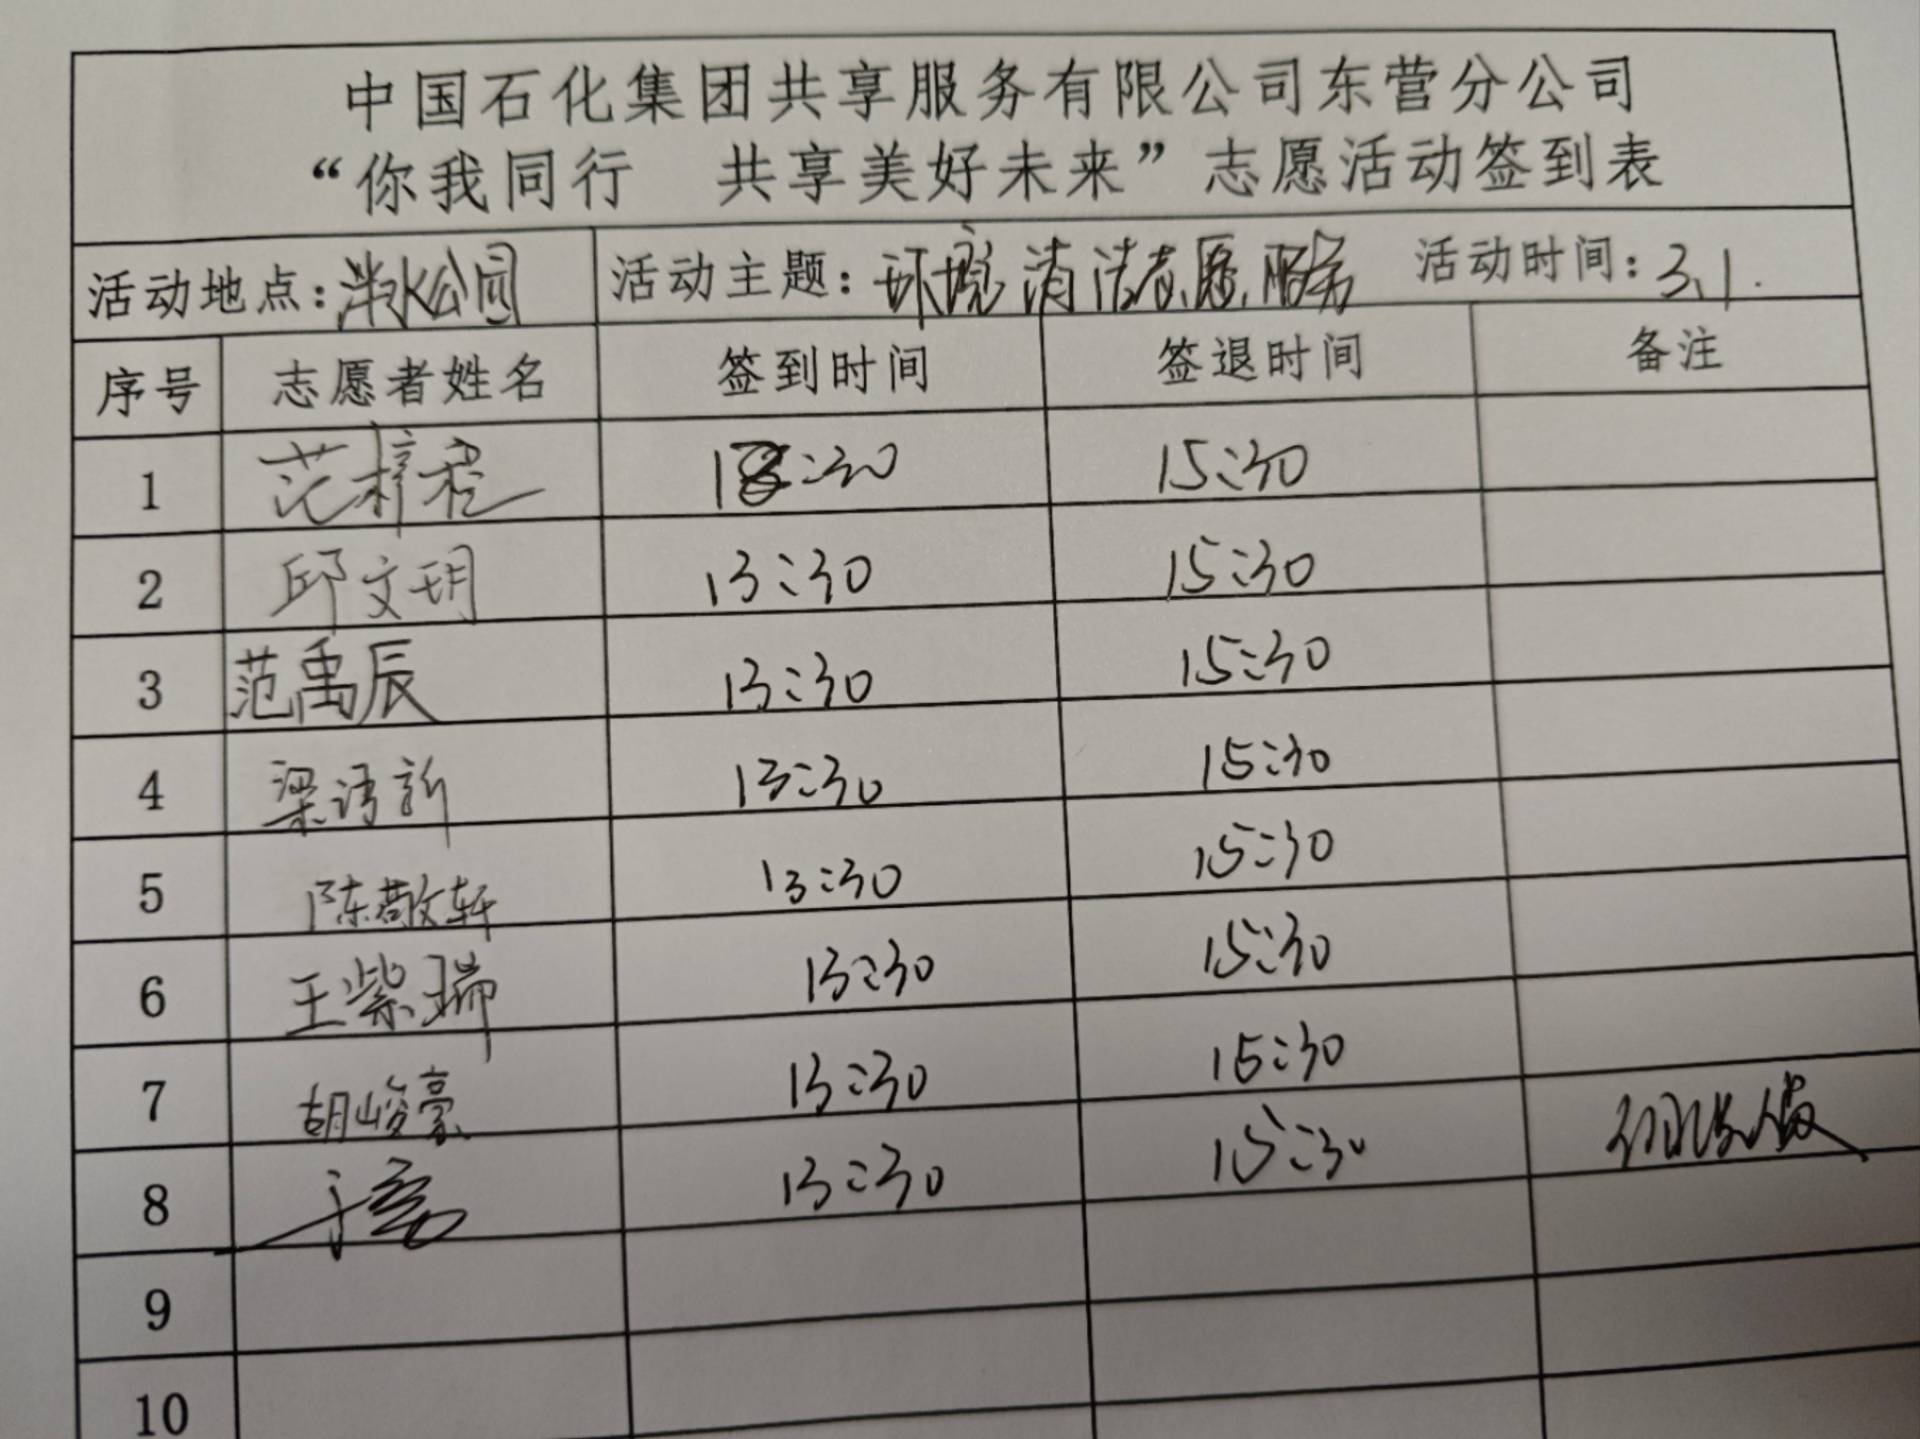 中国石化集团共享服务有限公司东营分公司
“你我同行 共享美好未来”志愿活动签到表
活动地点：公园 活动主题：环境清洁志愿服务 活动时间：3.1.
序号 志愿者姓名 签到时间 签退时间 备注
1 范梓程 :30 15:30
2 邱文玥 13:30 15:30
3 范禹辰 13:30 15:30
4 梁诗 13:30 15:30
5 陈敬轩 13:30 15:30
6 王紫瑞 13:30 15:30
7 胡峻豪 13:30 15:30
8 13:30 15:30
9
10